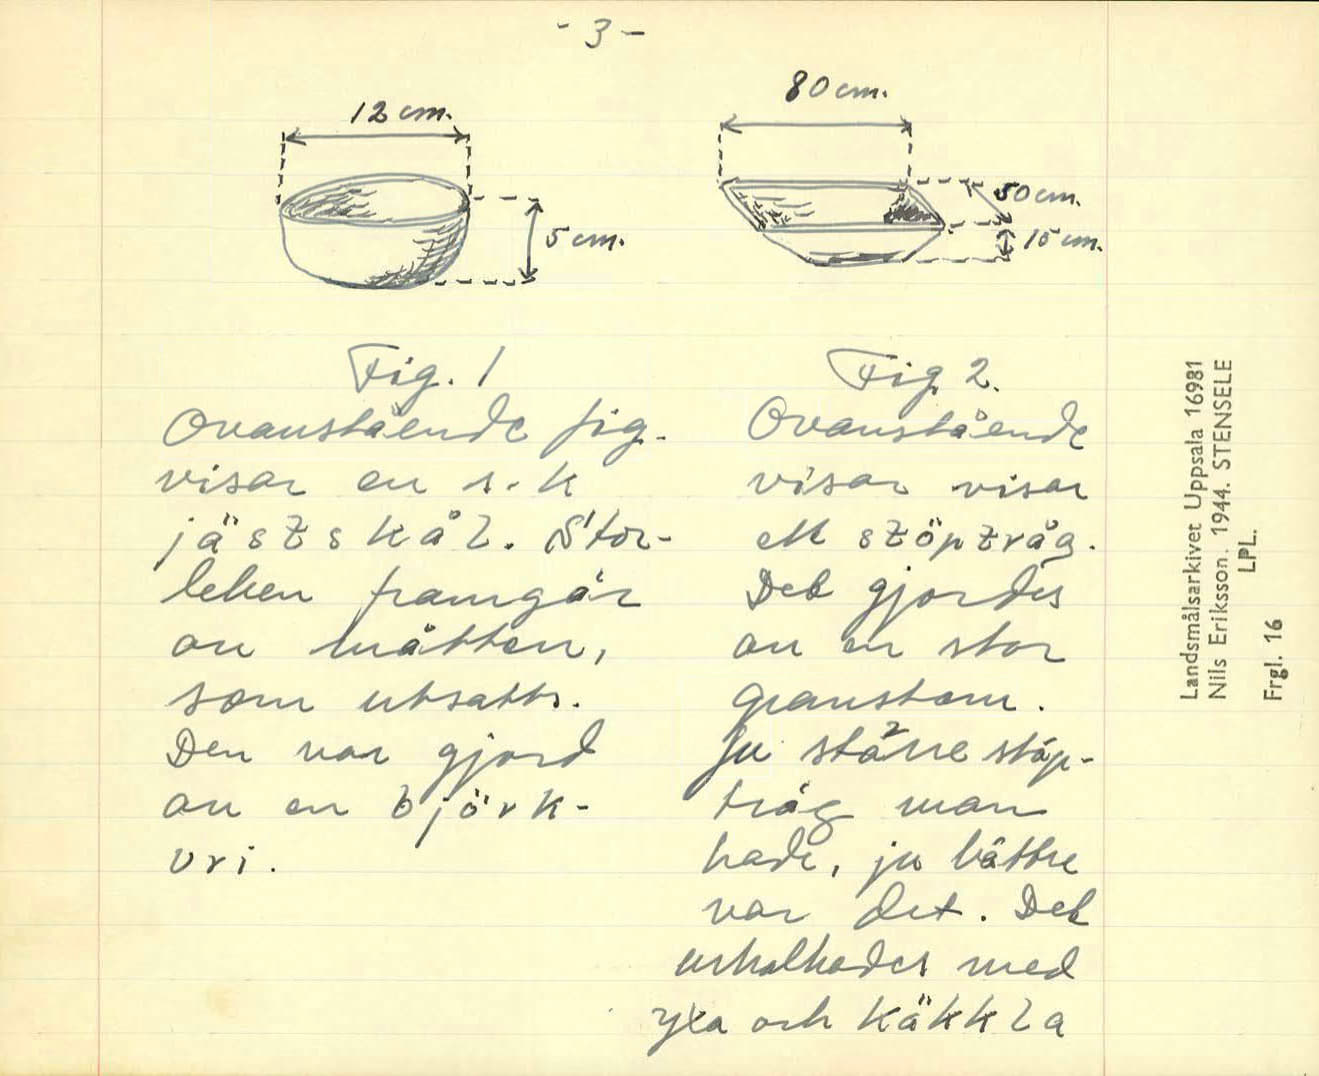 - 3 -
12 cm.
5 cm.
80 cm.
50 cm.
15 cm.
Fig. 1
Ovanstående fig.
visar en s.k
jästskål. Stor-
leken framgår
av måtten,
som utsatts.
Den var gjord
av en björk-
vri.
Fig 2.
Ovanstående
visar visar
ett stöptråg.
Det gjordes
av en stor
granstam.
Ju större stöp-
tråg man
hade, ju bättre
var det. Det
urholkades med
yxa och käkkla
Landsmålsarkivet Uppsala 16981
Nils Eriksson. 1944. STENSELE
LPL.
Frgl. 16